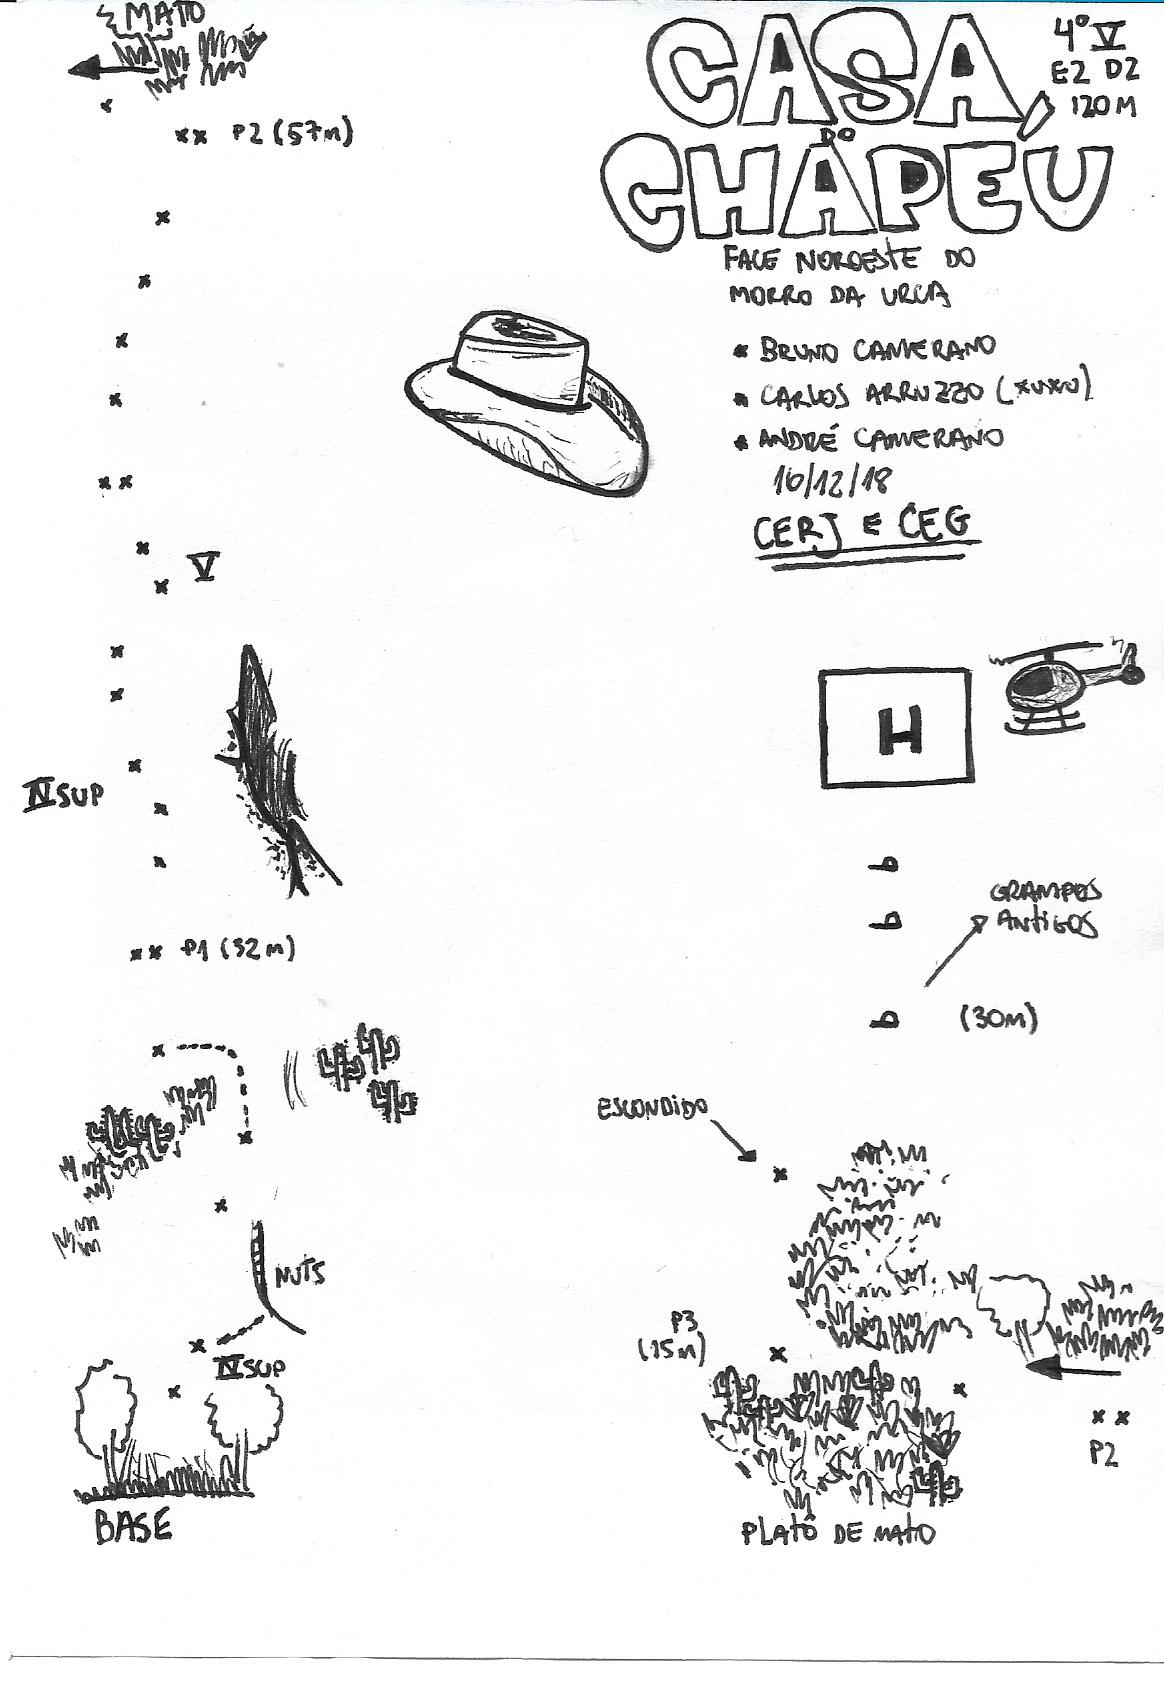 CASA
DO
CHAPÉU
4º V
E2 D2
120M
FACE NOROESTE DO
MORRO DA URCA
BRUNO CAMERANO
CARLOS ARRUZZO (XUXU)
ANDRÉ CAMERANO
16/12/18
CERJ E CEG
MATO
P2 (57m)
V
IV SUP
P1 (32m)
NUTS
IV SUP
BASE
H
GRAMPOS
ANTIGOS
(30M)
ESCONDIDO
P3
(15m)
P2
PLATÔ DE MATO